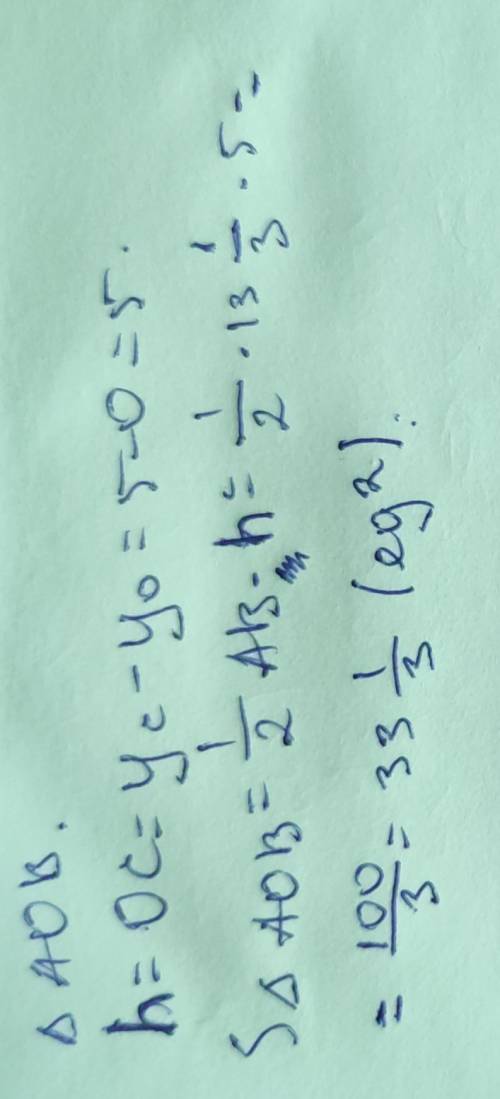 Δ AOB.
h = OC = y_c - y_0 = 5 - 0 = 5.
S Δ AOB = 1/2 AB · h = 1/2 · 13 1/3 · 5 =
= 100/3 = 33 1/3 (eg²).